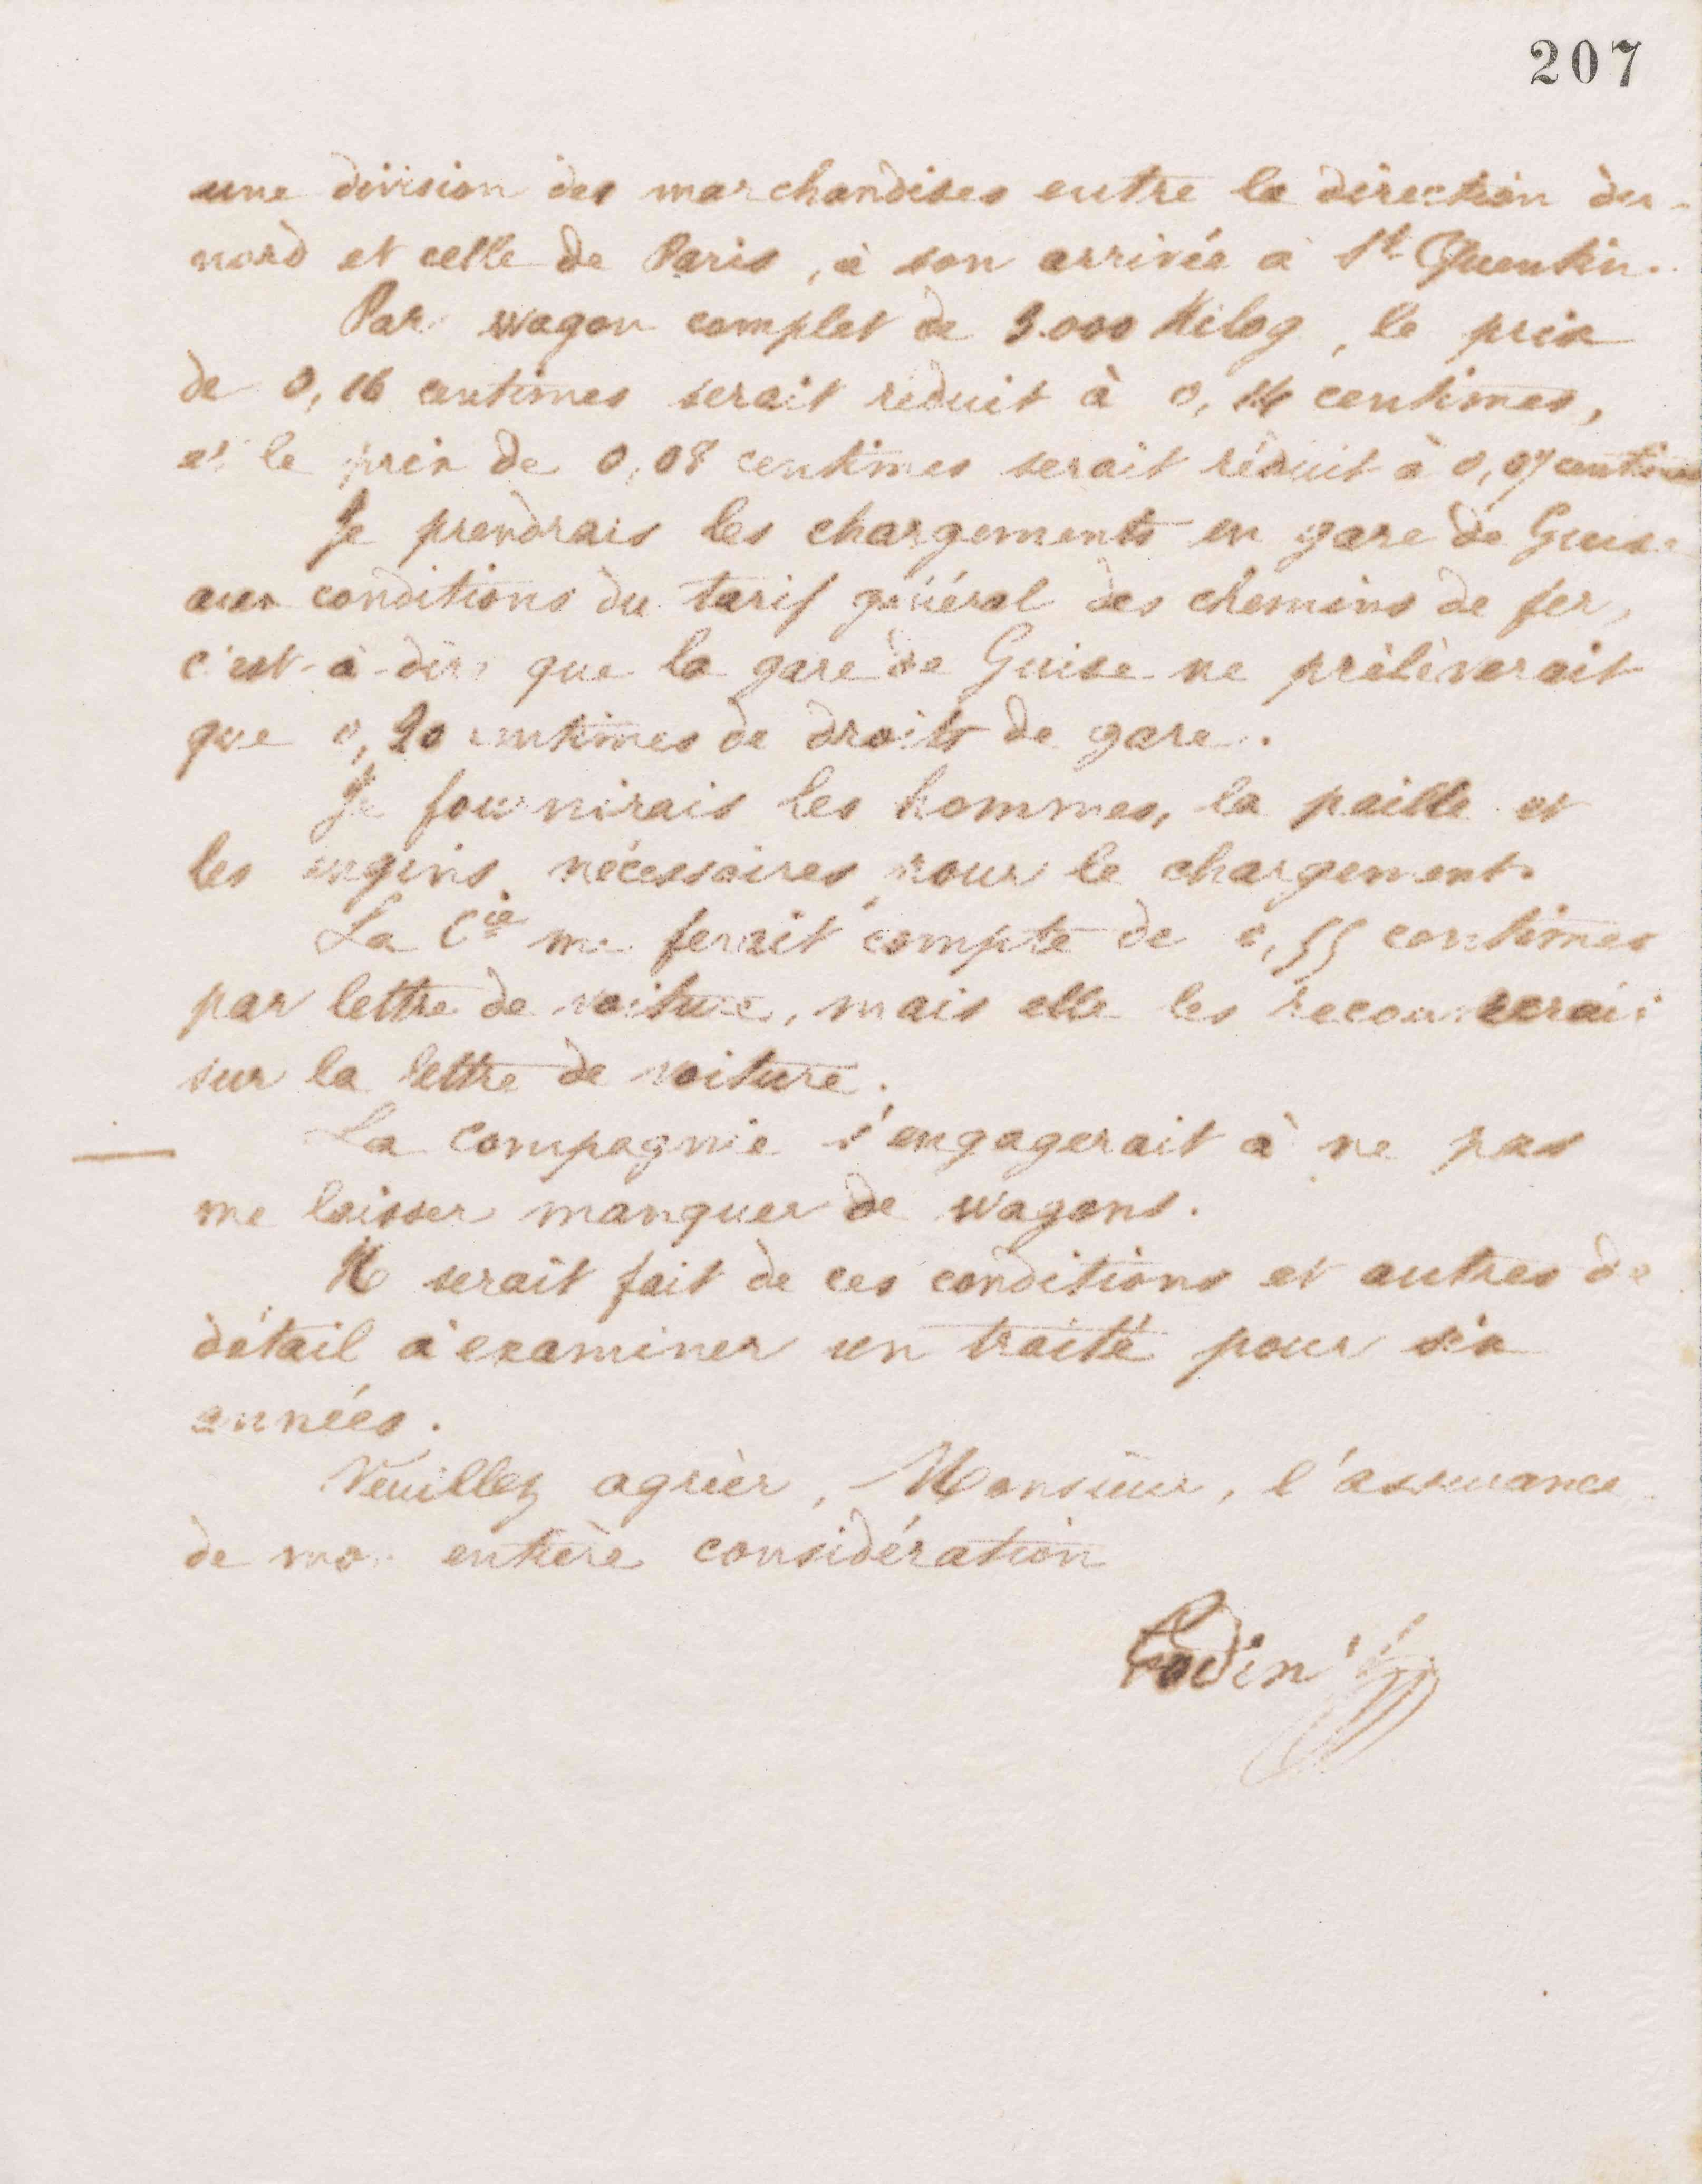 207
une division des marchandises entre la direction du
nord et celle de Paris, à son arrivée à St Quentin.
Par wagon complet de 3.000 Kilog, le prix
de 0,16 centimes serait réduit à 0,14 centimes,
et le prix de 0,08 centimes serait réduit à 0,07 centimes
Je prendrais les chargements en gare de Guise
aux conditions du tarif général des chemins de fer,
c'est-à-dire que la gare de Guise ne prélèverait
que 0,20 centimes de droits de gare.
Je fournirais les hommes, la paille et
les engins nécessaires pour le chargement.
La Cie me ferait compte de 0,55 centimes
par lettre de voiture, mais elle les recouvrerait
sur la lettre de voiture.
La Compagnie s'engagerait à ne pas
me laisser manquer de wagons.
Il serait fait de ces conditions et autres de
détail à examiner un traité pour six
années.
Veuillez agréer, Monsieur, l'assurance
de mon entière considération
Godin